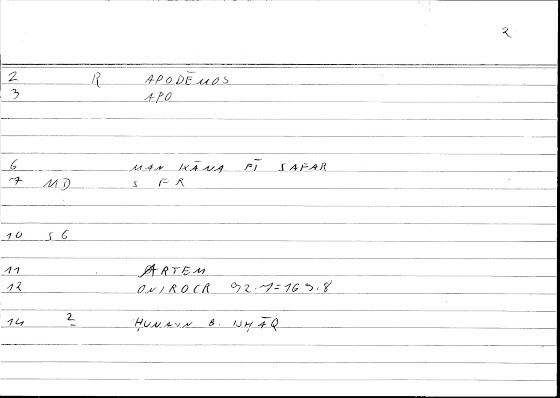 2
2 R APODĒMOS
3 APO
6 MAN KĀNA FĪ SAFAR
7 MD S F R
10 SG
11 ARTEM
12 ONIROCR 92.7=169.8
14 2 ḤUNAYN B. ISḤĀQ